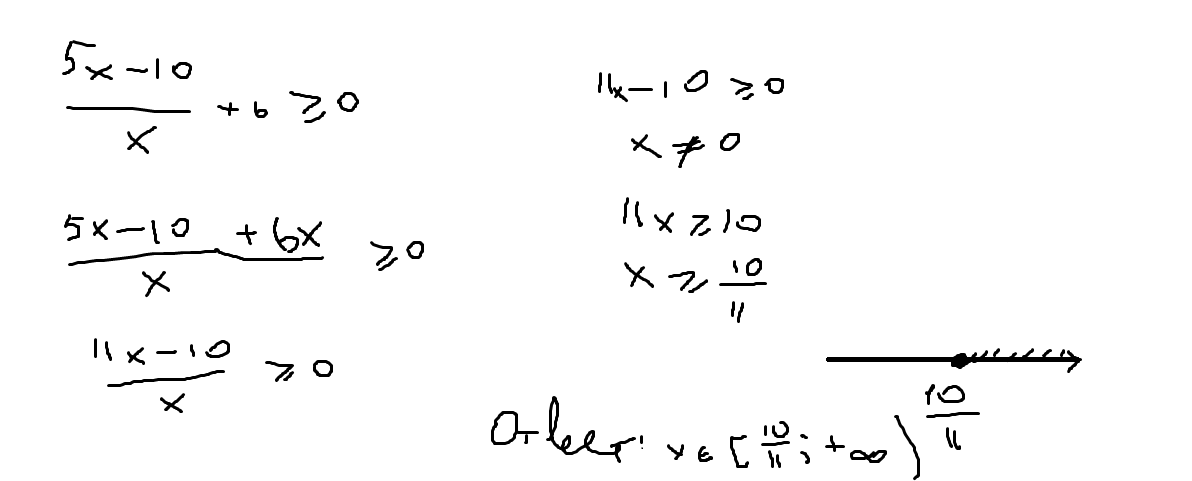 (5x-10)/x + 6 ⩾ 0
(5x-10 + 6x)/x ⩾ 0
(11x-10)/x ⩾ 0
11x-10 ⩾ 0
x ≠ 0
11x ⩾ 10
x ⩾ 10/11
10/11
Ответ: x ∈ [10/11; +∞)